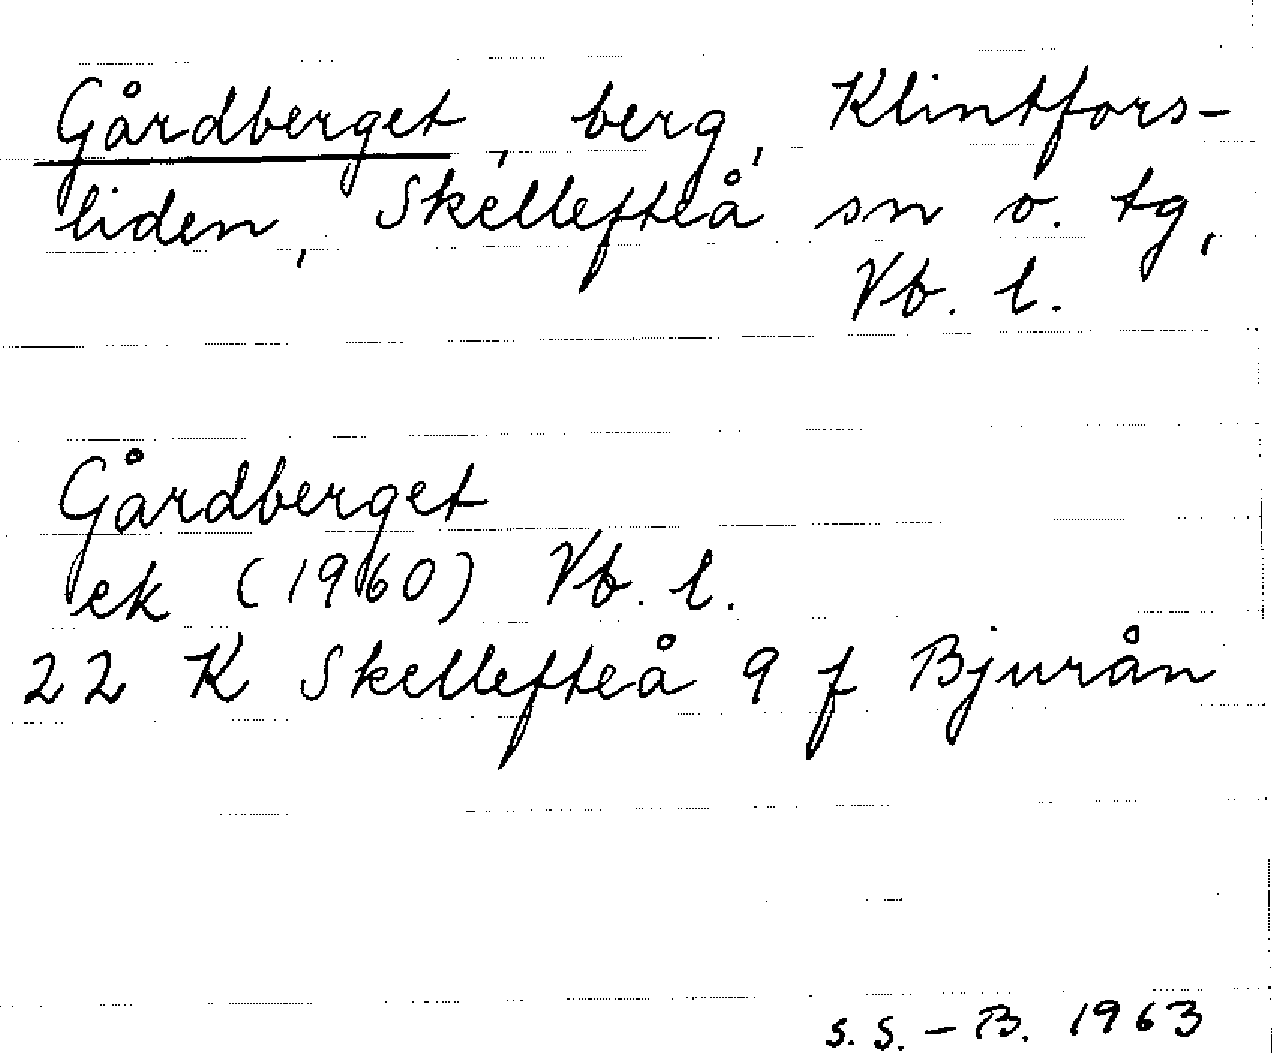 Gårdberget, berg, Klintfors-
liden, Skellefteå sn o. tg,
Vb. l.
Gårdberget
ek (1960) Vb. l.
22 K Skellefteå 9 f Bjurån
S. S. - B. 1963